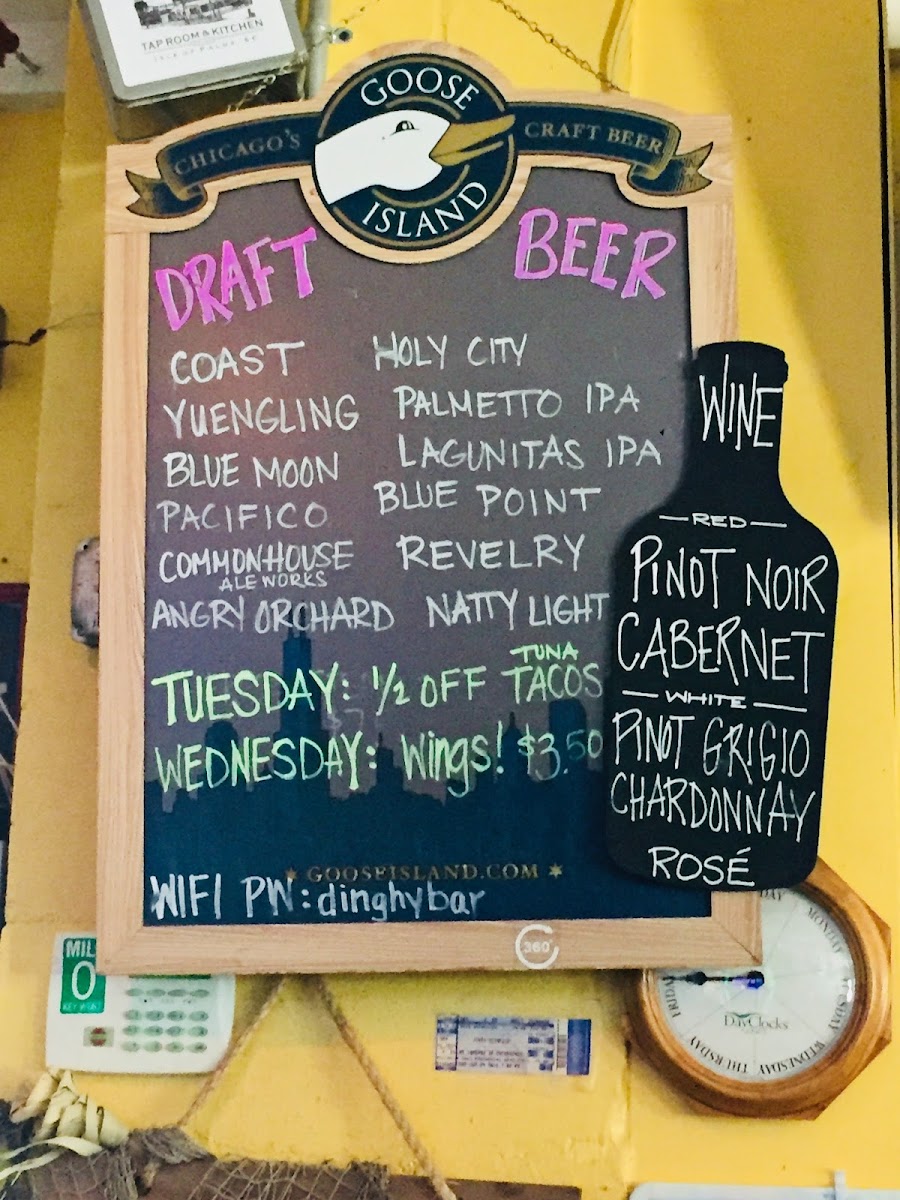 TAP ROOM & KITCHEN
ISLE OF PALMS, SC
GOOSE
ISLAND
CHICAGO'S
CRAFT BEER
DRAFT BEER
COAST
YUENGLING
BLUE MOON
PACIFICO
COMMONHOUSE
ALE WORKS
ANGRY ORCHARD
HOLY CITY
PALMETTO IPA
LAGUNITAS IPA
BLUE POINT
REVELRY
NATTY LIGHT
TUESDAY: 1/2 OFF TUNA TACOS
WEDNESDAY: Wings! $3.50
GOOSEISLAND.COM
WIFI PW: dinghybar
360°
WINE
RED
PINOT NOIR
CABERNET
WHITE
PINOT GRIGIO
CHARDONNAY
ROSÉ
MIL
0
KEY WEST
DayClocks
MONDAY
WEDNESDAY
THURSDAY
FRIDAY